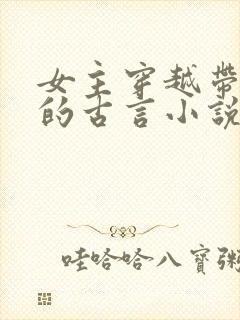 女主穿越帶
的古言小說
哇哈哈八寶粥